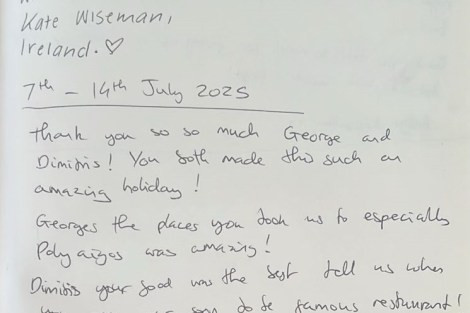 Kate Wiseman,
Ireland. ♡
7th – 14th July 2025
Thank you so so much George and
Dimitris! You both made this such an
amazing holiday!
Georges the places you took us to especially
Polyaigos was amazing!
Dimitis your food was the best tell us when
famous restaurant!